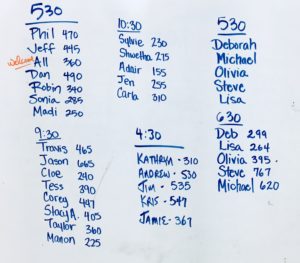 530
Phil 470
Jeff 445
welcome
Ali 360
Dan 490
Robin 340
Sonia 285
Madi 250
10:30
Sylvie 230
Shwetha 215
Adair 155
Jen 255
Carla 310
530
Deborah
Michael
Olivia
Steve
Lisa
630
Deb 299
Lisa 264
Olivia 395.
Steve 767
Michael 620
9:30
Travis 465
Jason 665
Cloe 240
Tess 390
Corey 497
Stacy A. 405
Taylor 360
Manon 225
4:30
KATHRYN - 310
ANDREW - 530
JIM - 535
KRIS - 547
JAMIE - 367